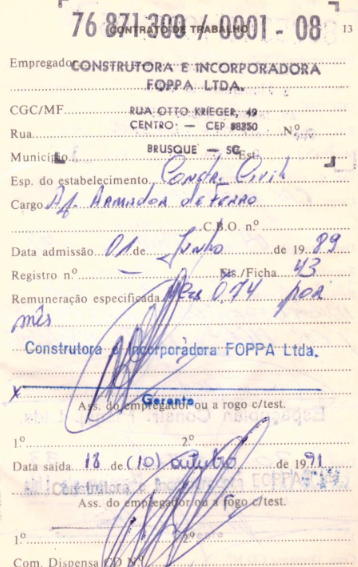 76 871 380 / 0001 - 08
CONTRATO DE TRABALHO 13
Empregador CONSTRUTORA E INCORPORADORA
FOPPA LTDA.
CGC/MF RUA OTTO KRIEGER, 49
Rua CENTRO — CEP 88350 Nº
Município BRUSQUE — SC Est.
Esp. do estabelecimento Constr. Civil
Cargo Aj. Armador de ferro
C.B.O. nº
Data admissão 01 de Junho de 19 89
Registro nº — Fls./Ficha 43
Remuneração especificada NCz$ 0,74 por
mês
Construtora e Incorporadora FOPPA Ltda.
x
Gerente
Ass. do empregador ou a rogo c/test.
1º 2º
Data saída 18 de (10) outubro de 19 91
Ass. do empregador ou a rogo c/test.
1º 2º
Com. Dispensa CD Nº